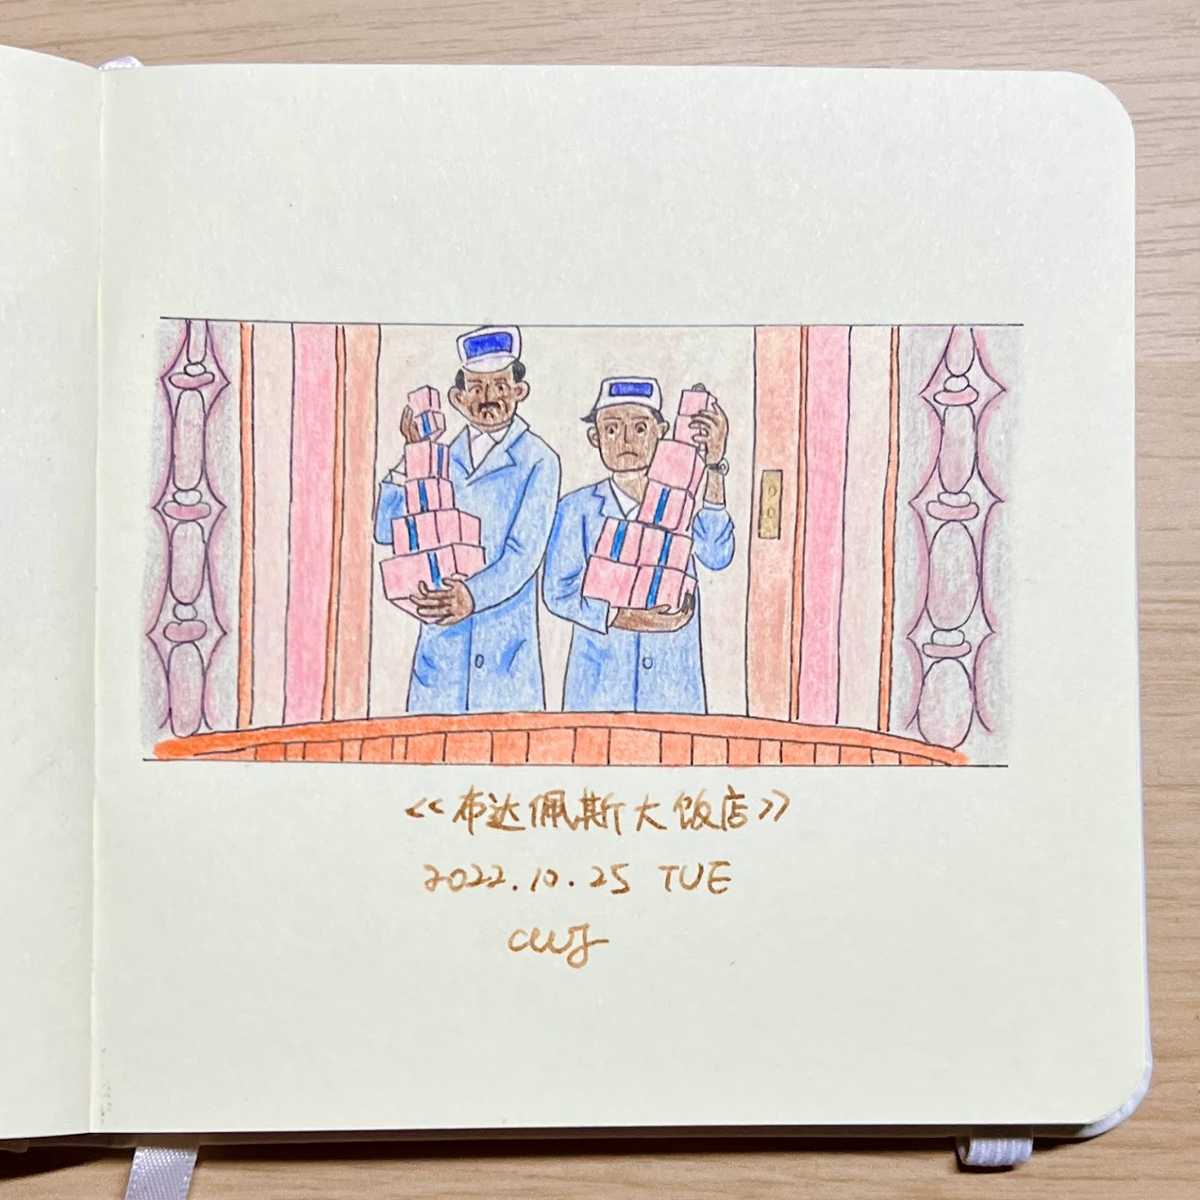 <<布达佩斯大饭店>>
2022.10.25 TUE
cwj